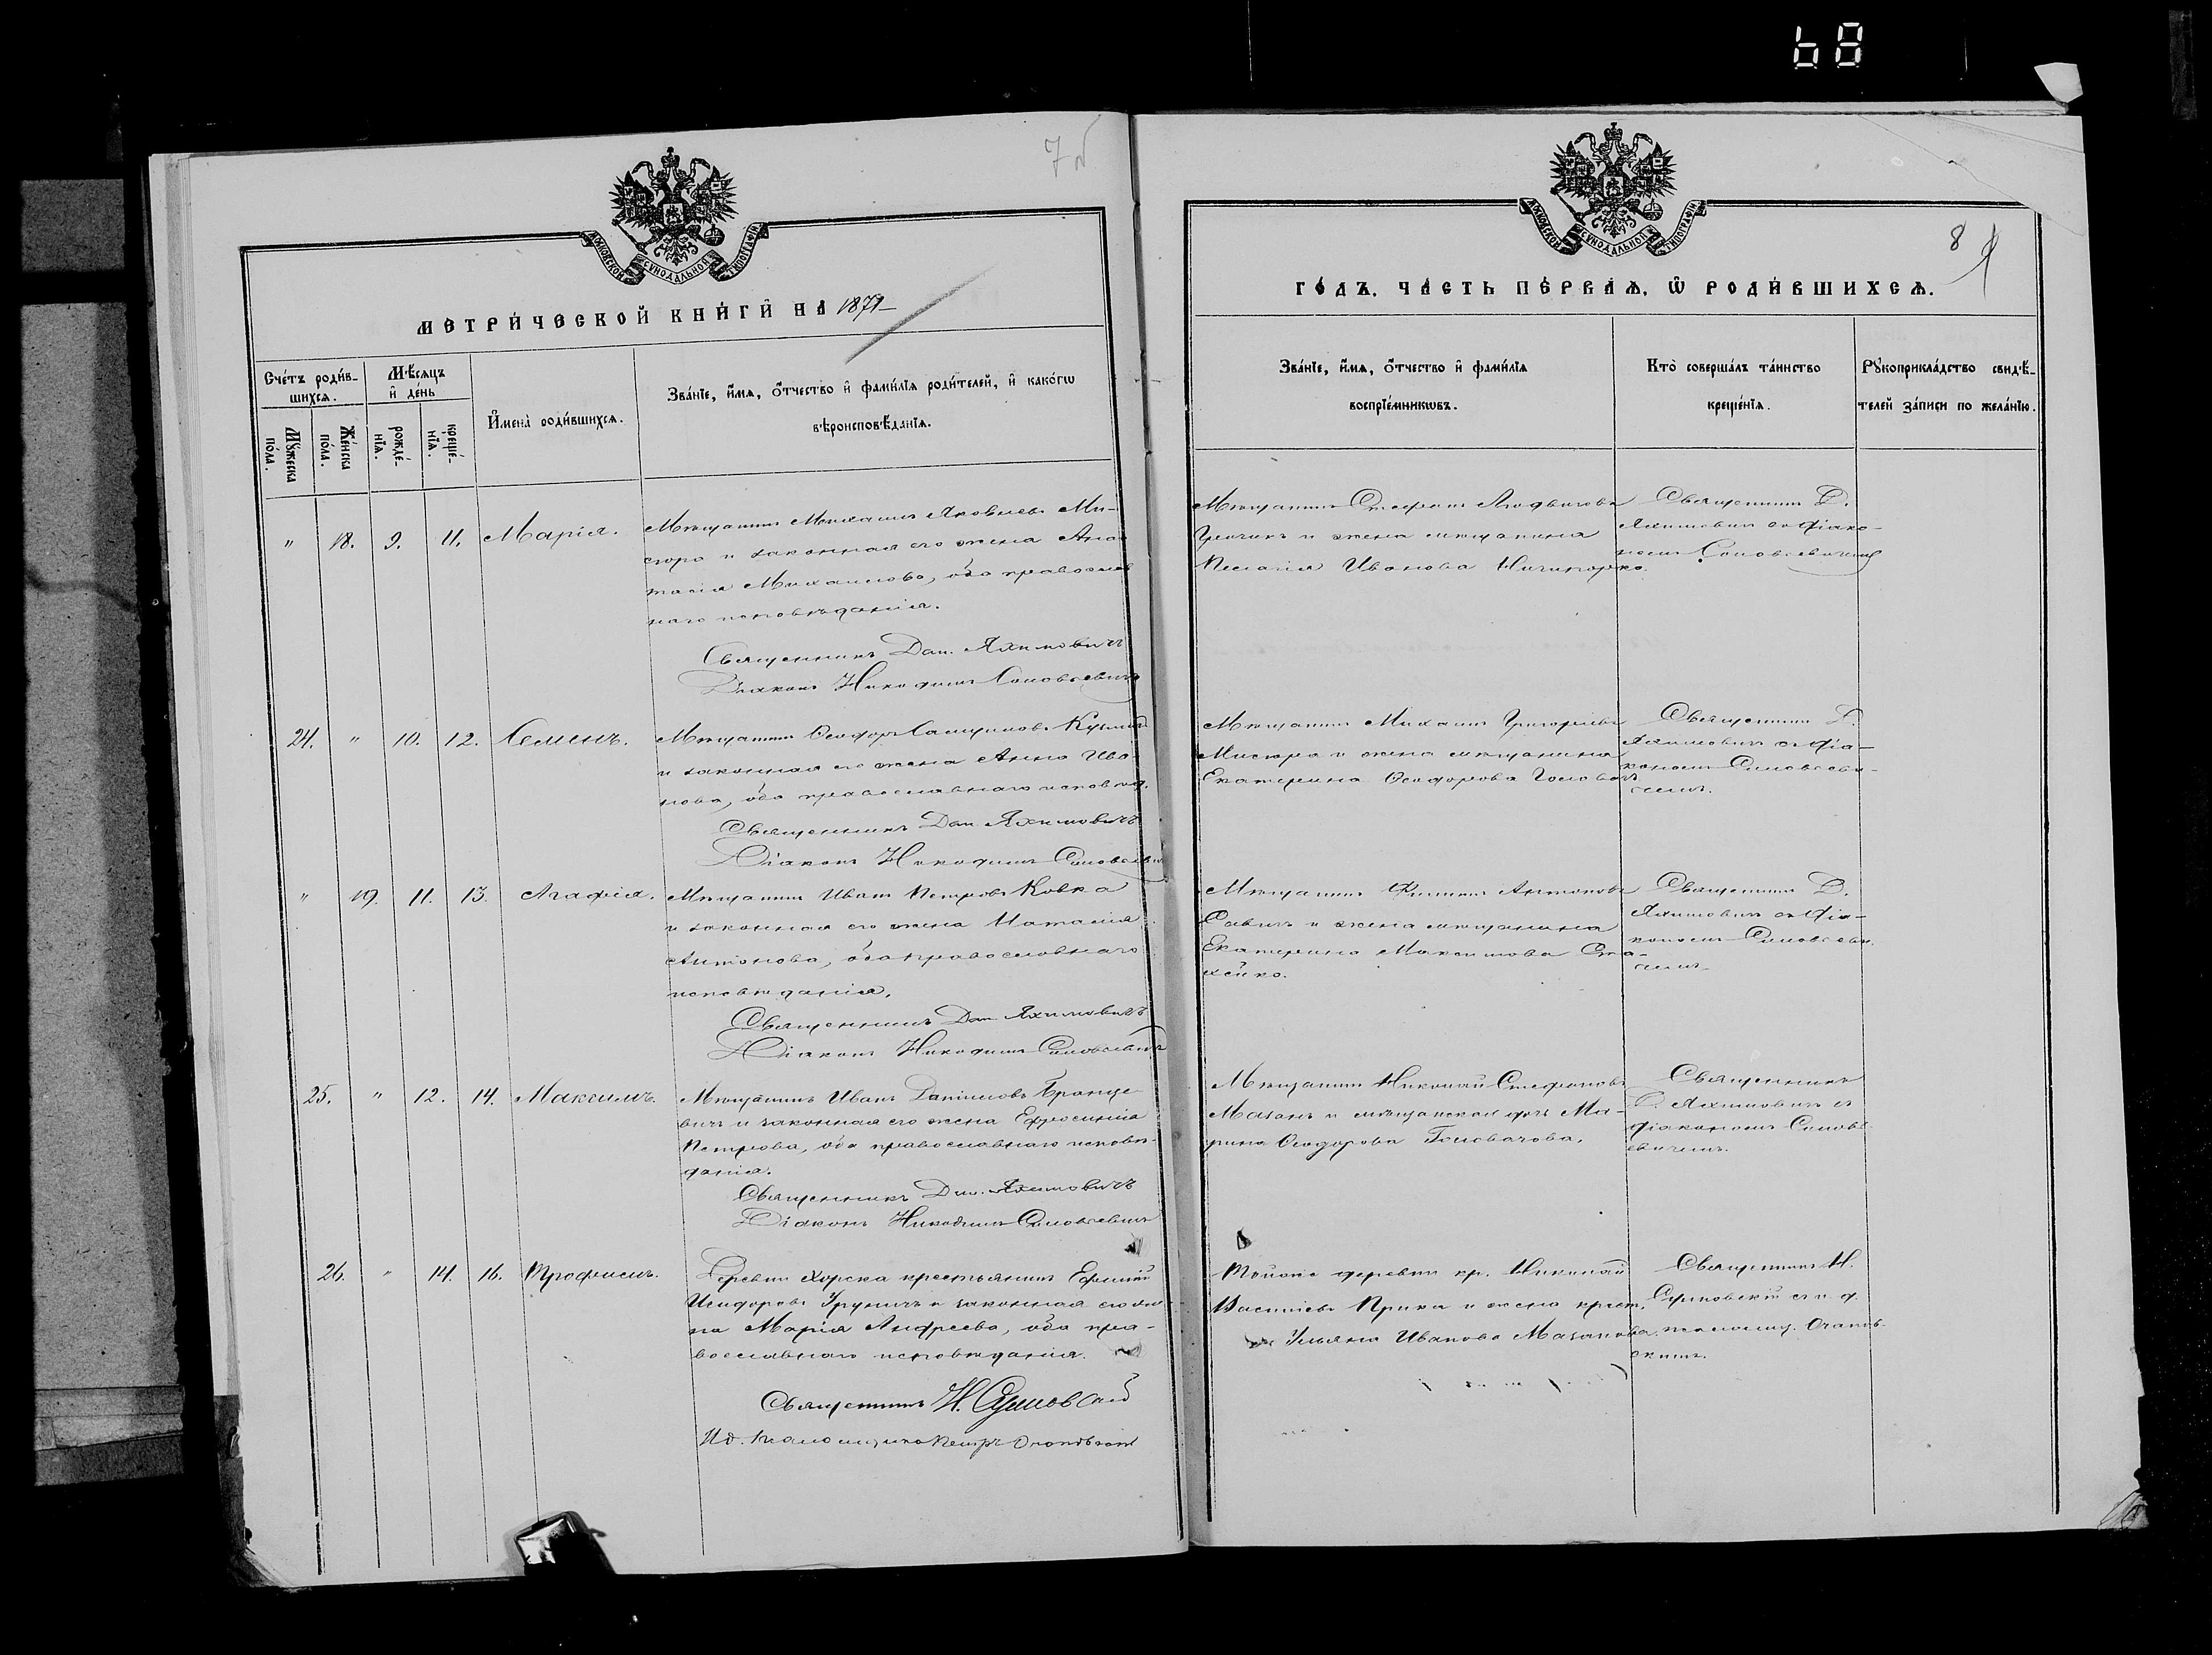 68
7
МОСКОВСКОЙ СѴНОДАЛЬНОЙ ТИПОГРАФІИ
МЕТРИ́ЧЕСКОЙ КНИ́ГИ НА 1871
Сче́тъ роди́в-
шихсѧ.
Мꙋ́жеска по́ла.
Же́нска по́ла.
Мѣ́сѧцъ
и҆ де́нь
рожде́-
нїѧ.
креще́-
нїѧ.
И҆мена̀ роди́вшихсѧ.
Зва́нїе, и҆́мѧ, ѻ҆́тчество и҆ фами́лїѧ роди́телей, и҆ како́гѡ
вѣроисповѣ́данїѧ.
" 18. 9. 11. Марія.
Мѣщанинъ Михаилъ Яковлевъ Ми-
сюра и законная его жена Анас-
тасія Михаилова, оба православ
наго исповѣданія.
Священникъ Дан. Яхимовичъ
Діаконъ Никодимъ Соловьевичъ
24. " 10. 12. Семенъ.
Мѣщанинъ Ѳеодоръ
и законная его жена Анна Ива-
нова, оба православнаго исповѣд.
Священникъ Дан. Яхимовичъ
Діаконъ Никодимъ Соловьевичъ
" 19. 11. 13. Агафія.
Мѣщанинъ Иванъ Петровъ Ковка
и законная его жена Наталія
Антонова, оба православнаго
исповѣданія.
Священникъ Дан. Яхимовичъ
Діаконъ Никодимъ Соловьевичъ
25. " 12. 14. Максимъ.
Мѣщанинъ Иванъ Даніиловъ Бранце-
вичъ и законная его жена Ефросинія
Петрова, оба православнаго исповѣ-
данія.
Священникъ Дан. Яхимовичъ
Діаконъ Никодимъ Соловьевичъ
26. " 14. 16. Трофимъ.
Деревни Хорска крестьянинъ Ефимій
Исидоровъ и законная его же-
на Марія Андреева, оба пра-
вославнаго исповѣданія.
Священникъ Н.
И.д. Псаломщика Петръ
8
МОСКОВСКОЙ СѴНОДАЛЬНОЙ ТИПОГРАФІИ
ГО́ДЪ. ЧА́СТЬ ПЕ́РВАѦ, Ѡ҆ РОДИ́ВШИХСѦ.
Зва́нїе, и҆́мѧ, ѻ҆́тчество и҆ фами́лїѧ
воспрїе́мникѡвъ.
Кто̀ соверша́лъ та́инство
креще́нїѧ.
Рꙋкоприкла́дство свидѣ́-
телей за́писи по жела́нїю.
Мѣщанинъ Стефанъ Людвиговъ
и жена мѣщанина
Пелагія Иванова Ничипорко.
Священникъ Д.
Яхимовичъ съ діако-
номъ Соловьевичемъ
Мѣщанинъ Михаилъ Григорьевъ
Мисюра и жена мѣщанина
Екатерина Ѳеодорова
Священникъ Д.
Яхимовичъ съ діа-
кономъ Соловьеви-
чемъ.
Мѣщанинъ Филиппъ Антоновъ
Савичъ и жена мѣщанина
Екатерина Максимова Ста-
хейко.
Священникъ Д.
Яхимовичъ съ діа-
кономъ Соловьеви-
чемъ.
Мѣщанинъ Николай Стефановъ
Мазанъ и мѣщанская дочь Ма-
рина Ѳеодорова Головачова.
Священникъ
Д. Яхимовичъ съ
діакономъ Соловь-
евичемъ.
деревни кр. Николай
Васильевъ Прика и жена крест.
Ульяна Иванова Мазанова.
Священникъ Н.
съ и. д.
псаломщ.